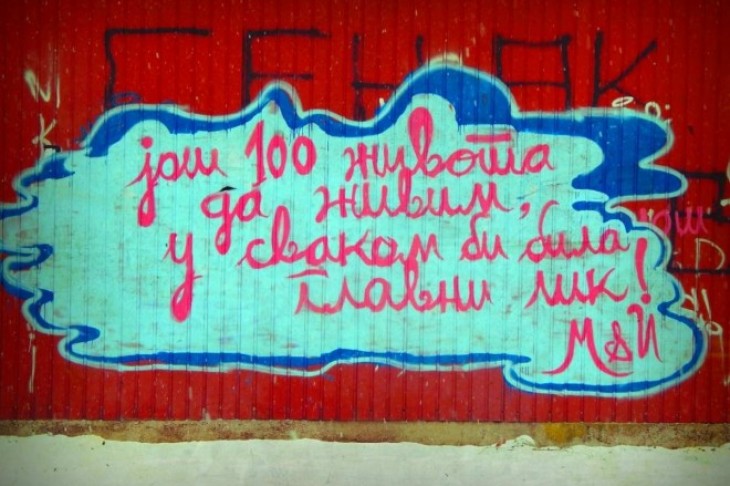 ГЕНЯК
још 100 живота
да живим,
у сваком би била
главни лик!
М&И
још